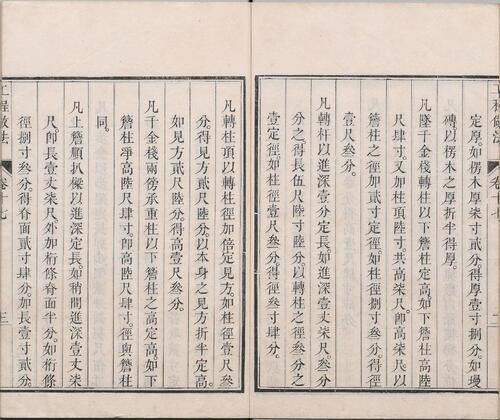 定厚如楞木厚柒寸貳分得厚壹寸捌分如墁
磚以楞木之厚折半得厚
凡墜千金棧轉柱以下簷柱高定高如下簷柱高陸
尺肆寸又加柱頂陸寸共高柒尺即高柒尺以
簷柱之徑加貳寸定徑如柱徑捌寸叁分得徑
壹尺叁分
凡轉杆以進深壹分定長如進深壹丈柒尺叁分
分之得長伍尺陸寸陸分以轉柱之徑叁分之
壹定徑如柱徑壹尺叁分得徑叁寸肆分
凡轉柱頂以轉柱徑加倍定見方如柱徑壹尺叁
分得見方貳尺陸分以本身之見方折半定高
如見方貳尺陸分得高壹尺叁分
凡千金棧兩傍承重柱以下簷柱之高定高如下
簷柱淨高陸尺肆寸即高陸尺肆寸徑與簷柱
同
凡上簷順扒樑以進深定長如稍間進深壹丈柒
尺即長壹丈柒尺外加桁條脊面半分如桁條
徑捌寸叁分得脊面貳寸肆分如長壹寸貳分
工程做法
卷十七
三